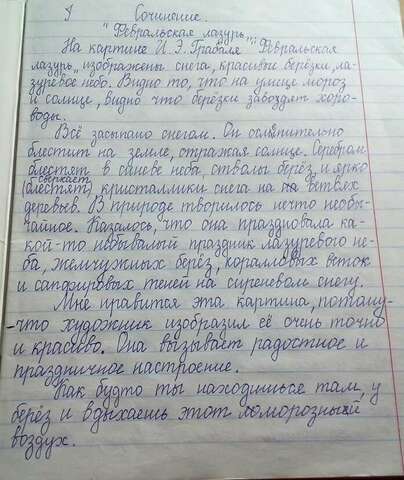 Сочинение.
"Февральская лазурь".
На картине И. Э. Грабаля "Февральская
лазурь" изображены снега, красивые берёзки, ла-
зуревое небо. Видно то, что на улице мороз
и солнце, видно что берёзки заводят хоро-
воды.
Всё засыпано снегом. Он ослепительно
блестит на земле, отражая солнце. Серебром
блестят в синеве неба, стволы берёз и ярко
сверкает
(блестят) кристаллики снега на ветвях
деревьев. В природе творилось нечто необы-
чайное. Казалось, что она праздновала ка-
кой-то небывалый праздник лазуревого не-
ба, жемчужных берёз, коралловых веток
и сапфировых теней на сиреневом снегу.
Мне нравится эта картина, потому-
-что художник изобразил её очень точно
и красиво. Она вызывает радостное и
праздничное настроение.
Как будто ты находишься там, у
берёз и вдыхаешь этот морозный
воздух.